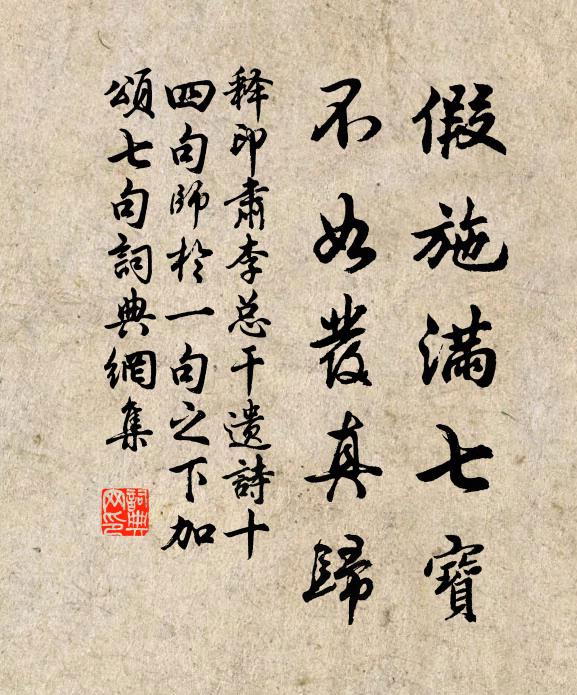 假施满七寶
不如發真歸
释印肃李总干遗詩十
四句師於一句之下加
頌七句詞典網集
詞典
网印